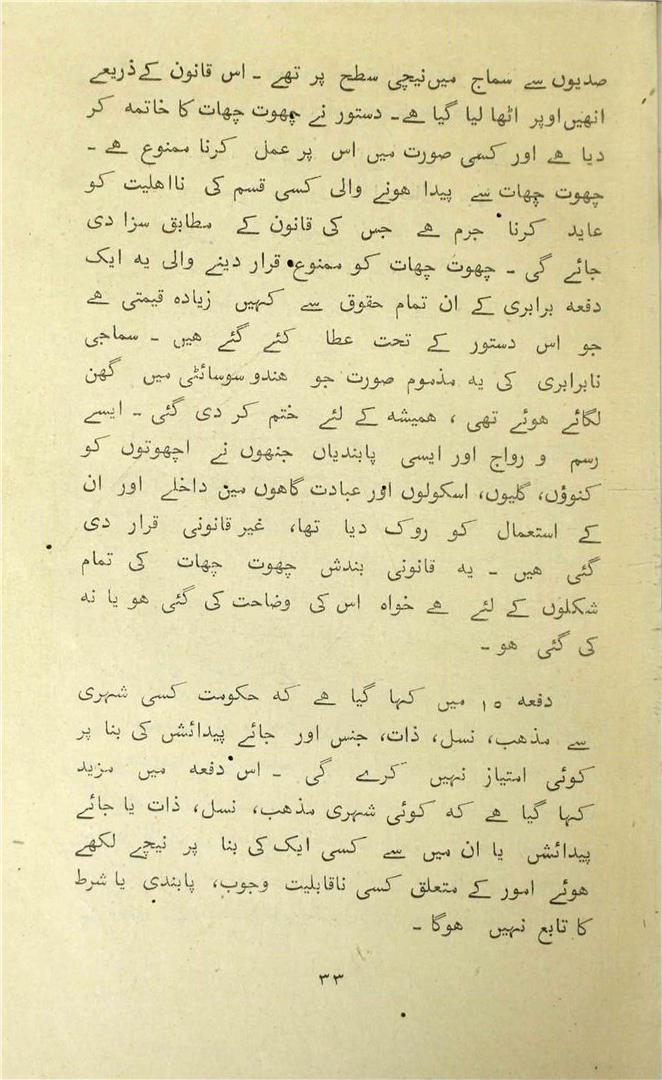 صدیوں سے سماج میں نیچی سطح پر تھے ۔ اس قانون کے ذریعے
انھیں اوپر اٹھا لیا گیا ہے۔ دستور نے چھوت چھات کا خاتمہ کر
دیا ہے اور کسی صورت میں اس پر عمل کرنا ممنوع ہے ۔
چھوت چھات سے پیدا ہونے والی کسی قسم کی نااہلیت کو
عاید کرنا جرم ہے جس کی قانون کے مطابق سزا دی
جائے گی ۔ چھوت چھات کو ممنوع قرار دینے والی یہ ایک
دفعہ برابری کے ان تمام حقوق سے کہیں زیادہ قیمتی ہے
جو اس دستور کے تحت عطا کئے گئے ہیں ۔ سماجی
نابرابری کی یہ مذموم صورت جو ہندو سوسائٹی میں گھن
لگائے ہوئے تھی ، ہمیشہ کے لئے ختم کر دی گئی ۔ ایسے
رسم و رواج اور ایسی پابندیاں جنھوں نے اچھوتوں کو
کنوؤں، گلیوں، اسکولوں اور عبادت گاہوں مین داخلے اور ان
کے استعمال کو روک دیا تھا، غیر قانونی قرار دی
گئی ہیں ۔ یہ قانونی بندش چھوت چھات کی تمام
شکلوں کے لئے ہے خواہ اس کی وضاحت کی گئی ہو یا نہ
کی گئی ہو ۔
دفعہ ۱۵ میں کہا گیا ہے کہ حکومت کسی شہری
سے مذہب، نسل، ذات، جنس اور جائے پیدائش کی بنا پر
کوئی امتیاز نہیں کرے گی ۔ اس دفعہ میں مزید
کہا گیا ہے کہ کوئی شہری مذہب، نسل، ذات یا جائے
پیدائش یا ان میں سے کسی ایک کی بنا پر نیچے لکھے
ہوئے امور کے متعلق کسی ناقابلیت وجوب، پابندی یا شرط
کا تابع نہیں ہوگا ۔
۳۳